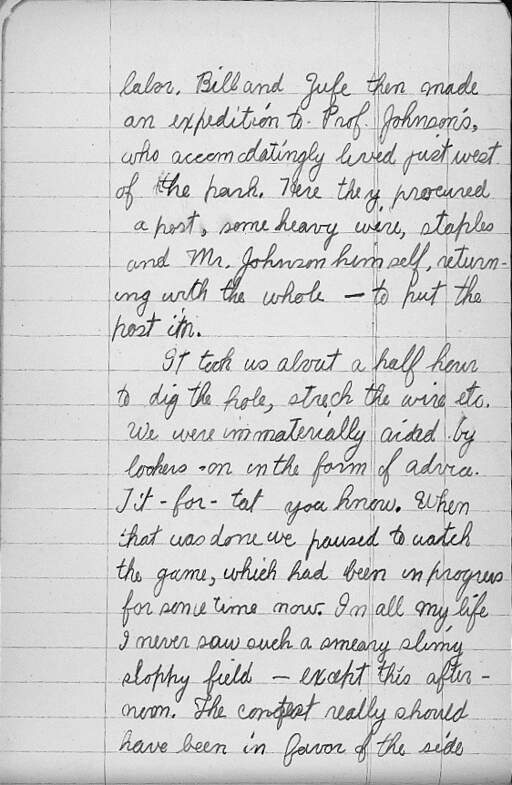 labor. Bill and Jufe then made
an expedition to Prof. Johnson's,
who accomodatingly lived just west
of the park. Here they procured
a post, some heavy wire, staples
and Mr. Johnson himself, return-
ing with the whole — to put the
post in.
It took us about a half hour
to dig the hole, strech the wire etc.
We were immaterially aided by
lookers-on in the form of advice.
Tit-for-tat you know. When
that was done we paused to watch
the game, which had been in progress
for some time now. In all my life
I never saw such a smeary slimy
sloppy field — except this after-
noon. The contest really should
have been in favor of the side